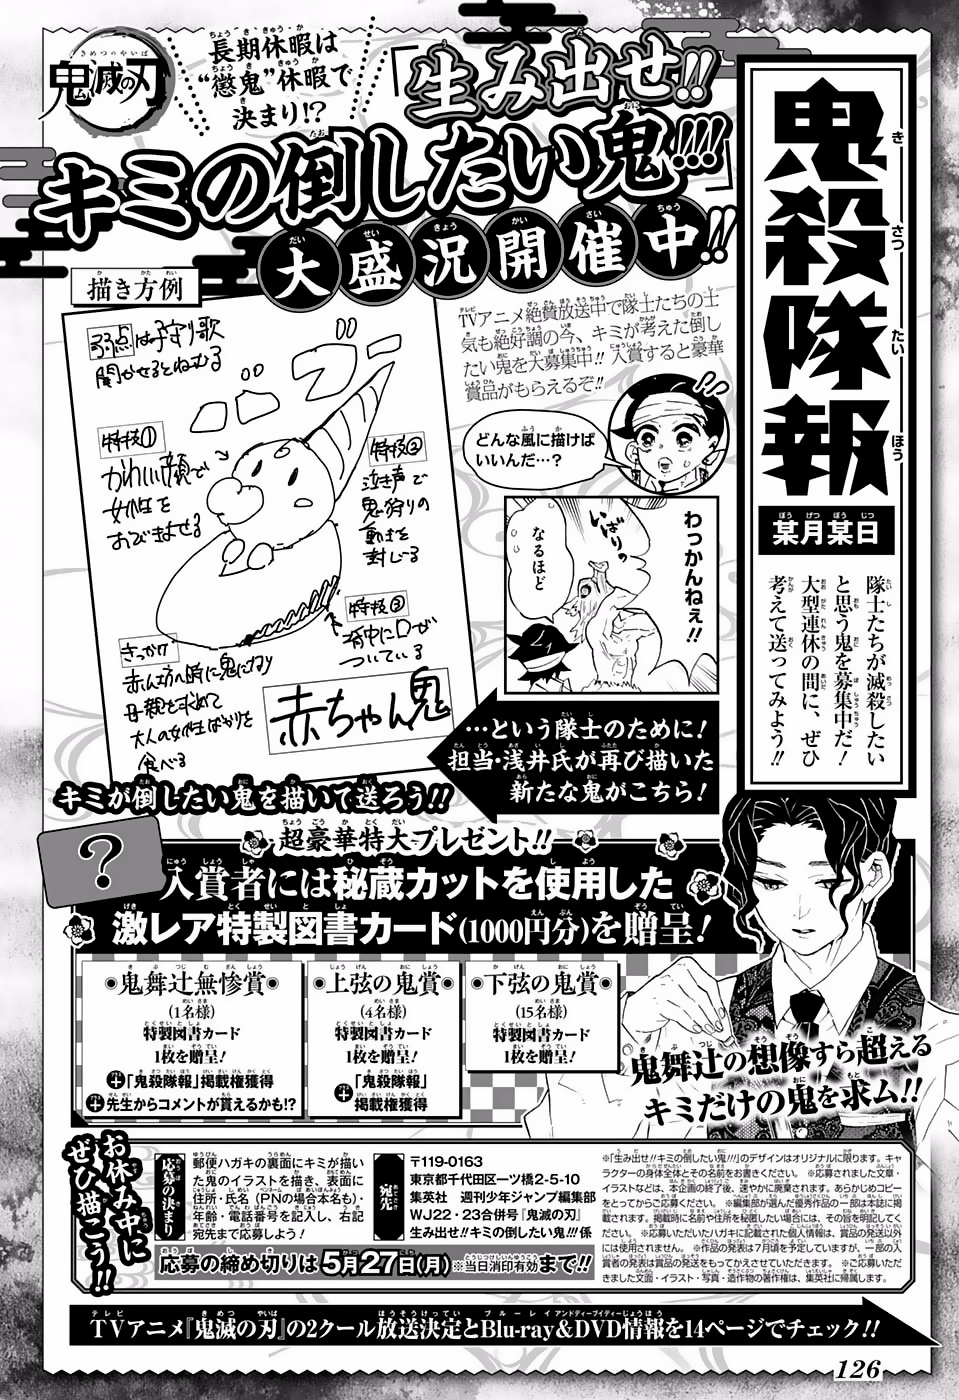 鬼滅の刃
長期休暇は
“懲鬼”休暇で
決まり!?
「生み出せ!!
キミの倒したい鬼!!!」
大盛況開催中!!
鬼殺隊報
某月某日
隊士たちが滅殺したい
と思う鬼を募集中だ!
大型連休の間に、ぜひ
考えて送ってみよう!!
TVアニメ絶賛放送中で隊士たちの士
気も絶好調の今、キミが考えた倒し
たい鬼を大募集中!! 入賞すると豪華
賞品がもらえるぞ!!
どんな風に描けば
いいんだ…?
わっかんねぇ!!
いばりっ
なるほど
描き方例
弱点は子守り歌
聞かせるとねむる
特技①
かわいい顔で
女性を
おびきよせる
特技②
泣き声で
鬼狩りの
動きを
封じる
特技③
背中に口が
ついている
きっかけ
赤ん坊の時に鬼になり
母親を求めて
大人の女性ばかりを
食べる
赤ちゃん鬼
…という隊士のために!
担当・浅井氏が再び描いた
新たな鬼がこちら!
キミが倒したい鬼を描いて送ろう!!
?
超豪華特大プレゼント!!
入賞者には秘蔵カットを使用した
激レア特製図書カード(1000円分)を贈呈!
鬼舞辻無惨賞
(1名様)
特製図書カード
1枚を贈呈!
+「鬼殺隊報」掲載権獲得
+先生からコメントが貰えるかも!?
上弦の鬼賞
(4名様)
特製図書カード
1枚を贈呈!
+「鬼殺隊報」
掲載権獲得
下弦の鬼賞
(15名様)
特製図書カード
1枚を贈呈!
鬼舞辻の想像すら超える
キミだけの鬼を求ム!!
お休み中に
ぜひ描こう!!
応募の決まり
郵便ハガキの裏面にキミが描い
た鬼のイラストを描き、表面に
住所・氏名(PNの場合本名も)・
年齢・電話番号を記入し、右記
宛先まで応募しよう!
宛先
〒119-0163
東京都千代田区一ツ橋2-5-10
集英社 週刊少年ジャンプ編集部
WJ22・23合併号『鬼滅の刃』
生み出せ!!キミの倒したい鬼!!!係
応募の締め切りは5月27日(月)※当日消印有効まで!!
※「生み出せ!!キミの倒したい鬼!!!」のデザインはオリジナルに限ります。キャ
ラクターの身体全体とその名前をお書きください。 ※応募されました文章・
イラストなどは、本企画の終了後、速やかに廃棄されます。あらかじめコピー
をとってからご応募ください。 ※編集部が選んだ優秀作品の一部は本誌に掲
載されます。掲載時に名前や住所を秘匿したい場合には、その旨を明記してく
ださい。 ※応募いただいたハガキに記載された個人情報は、賞品の発送以外
には使用されません。 ※作品の発表は7月頃を予定していますが、一部の入
賞者の発表は賞品の発送をもってかえさせていただきます。 ※ご応募いただ
きました文面・イラスト・写真・造作物の著作権は、集英社に帰属します。
TVアニメ『鬼滅の刃』の2クール放送決定とBlu-ray&DVD情報を14ページでチェック!!
126